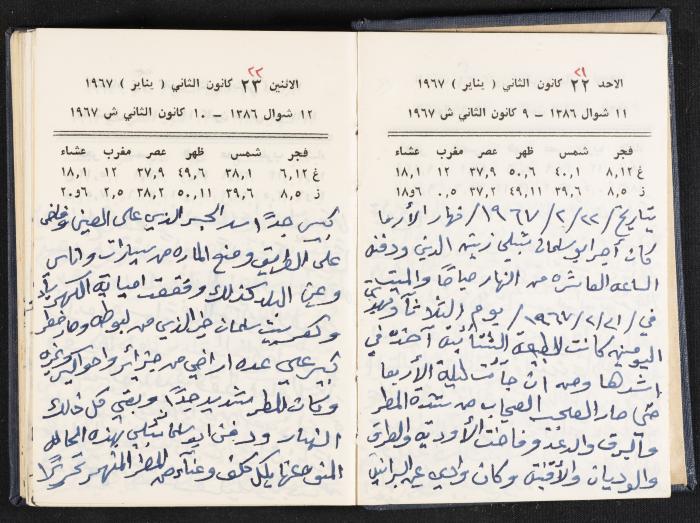 ٢١
الاحد ٢٢ كانون الثاني ( يناير ) ١٩٦٧
١١ شوال ١٣٨٦ – ٩ كانون الثاني ش ١٩٦٧
فجر شمس ظهر عصر مغرب عشاء
غ ٨,١٢ ٤٠,١ ٥٠,٦ ٣٧,٩ ١٢ ١٨,١
ز ٨,٥ ٣٩,٦ ٤٩,١١ ٣٧,٢ ٠,٥ ١٨و٦
بتاريخ /٢٢/ ٢/ ١٩٦٧/ نهار الأربعا
كان أجر ابو سلمان شبلي زين الدين ودفنه
الساعه العاشره من النهار صباحًا والمبيت
في /٢١/ ٢/ ١٩٦٧/ يوم الثلاثا
اليومين كانت الطبيعة الشتائية آخذه في
اشدها ومن ان جائت ليلة الأربعا
حتى صار السحاب من شدة المطر
والبرق والرعد وفاضت الأوديه والطرق
والوديان والأقنية وكان وادي عين
٢٢
الاثنين ٢٣ كانون الثاني ( يناير ) ١٩٦٧
١٢ شوال ١٣٨٦ – ١٠ كانون الثاني ش ١٩٦٧
فجر شمس ظهر عصر مغرب عشاء
غ ٦,١٢ ٣٨,١ ٤٩,٦ ٣٧,٩ ١٢ ١٨,١
ز ٨,٥ ٣٩,٦ ٥٠,١١ ٣٨,٢ ٢,٥ ٢٠و٦
جدًا سد الجسر الذي على العين وفاض
على الطريق ومنع الماره من سيارات وناس
وعين البلد كذلك
بنت سلمان الذي من وصار خطر
كبير على عدة اراضي من
وكان المطر شديد جدًا وبقي كل ذلك
النهار ودفن ابو سلمان شبلي بهذه الحاله
المنوه عنها بكل وعنآء من المطر المنهمر